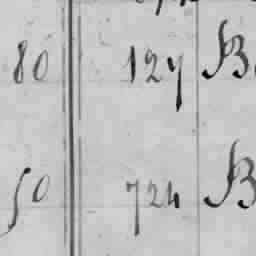 80 127 B
50 724 B